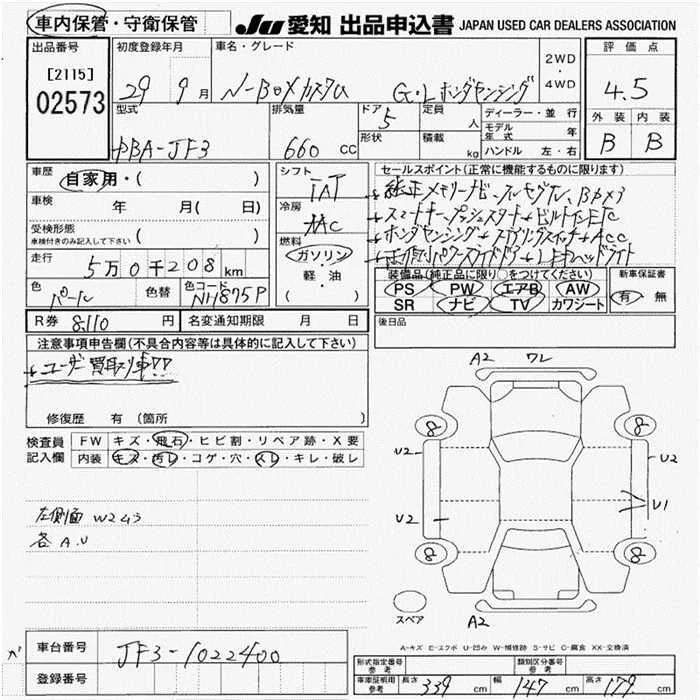 車内保管・守衛保管
JU 愛知 出品申込書 JAPAN USED CAR DEALERS ASSOCIATION
出品番号 初度登録年月 車名・グレード 2WD・4WD 評価点
[2115]
02573 29 9月 N-BOXカスタム G・Lホンダセンシング 4.5
型式 排気量 ドア 定員 人 ディーラー・並行 外装 内装
DBA-JF3 660cc 5 形状 積載 kg モデル年式 年 B B
ハンドル 左・右
車歴 自家用・( ) シフト IAT セールスポイント(正常に機能するものに限ります)
車検 年 月( 日) 冷房 AAC 純正メモリーナビ フルセグTV、Bカメラ
受検形態 ( ) スマートキー プッシュスタート ビルトインETC
車検付きのみ記入して下さい
燃料 ガソリン・軽・油 ( ) ホンダセンシング ステアリングスイッチ ACC
走行 5万0千208km 両側パワースライドドア LEDヘッドライト
色 パール 色替 色コード NH875P
装備品(純正品に限り○をつけてください) 新車保証書
PS PW エアB AW 有・無
SR ナビ TV カワシート
R券 8110円 名変通知期限 月 日 後日品
注意事項申告欄(不具合内容等は具体的に記入して下さい)
ユーザー買取り車!!
修復歴 有 (箇所 )
検査員記入欄 FW キズ・飛石・ヒビ割・リペア跡・X要
内装 キズ・汚レ・コゲ・穴・スレ・キレ・破レ
左側面 W2 4ケ
各 A.U
A2 ワレ
8 8
U2 U2
U2 U1
8 8
A2
スペア
A-キズ E-エクボ U-凹み W-補修跡 S-サビ C-腐食 XX-交換済
車台番号 JF3-1022400
登録番号
形式指定番号 参考 類別区分番号 参考
車庫証明用 参考 長さ 339cm 幅 147cm 高さ 179cm